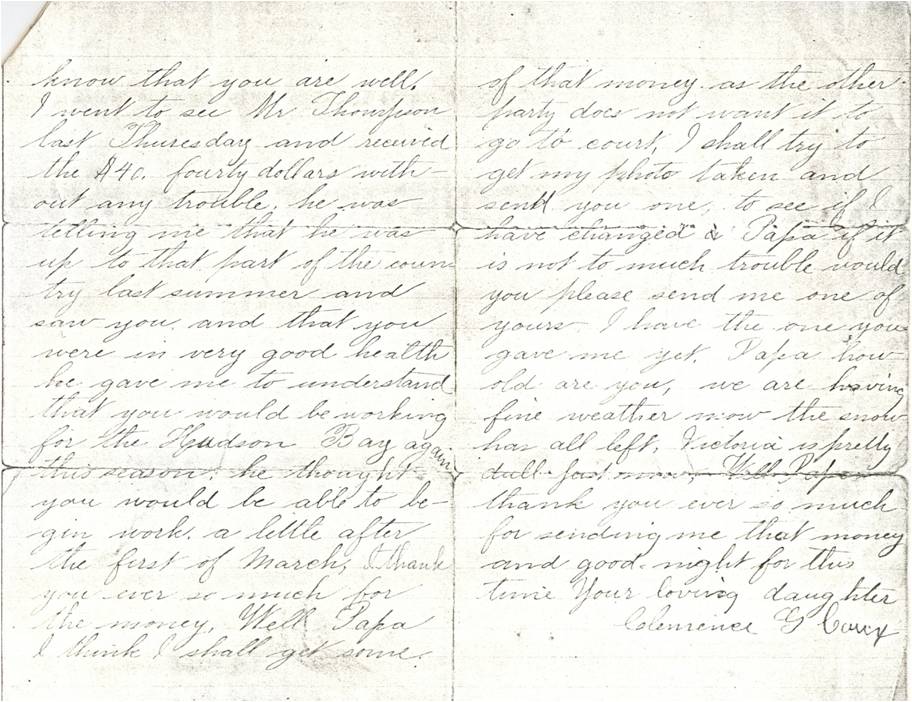 know that you are well.
I went to see Mr Thompson
last Thuresday and received
the $40. fourty dollars with-
out any trouble. he was
telling me that he was
up to that part of the coun
try last summer and
saw you. and that you
were in very good health
he gave me to understand
that you would be working
for the Hudson Bay again
this season. he thought
you would be able to be-
gin work. a little after
the first of March, I thank
you ever so much for
the money. Well Papa
I think I shall get some.
of that money. as the other
party does not want it to
go to court, I shall try to
get my photo taken and
send you one, to see if I
have changed & Papa if it
is not to much trouble would
you please send me one of
yours. I have the one you
gave me yet. Papa how
old are you, we are having
fine weather now the snow
has all left. Victoria is pretty
dull just now, Well Papa
thank you ever so much
for sending me that money
and good-night for this
time Your loving daughter
Clemence G